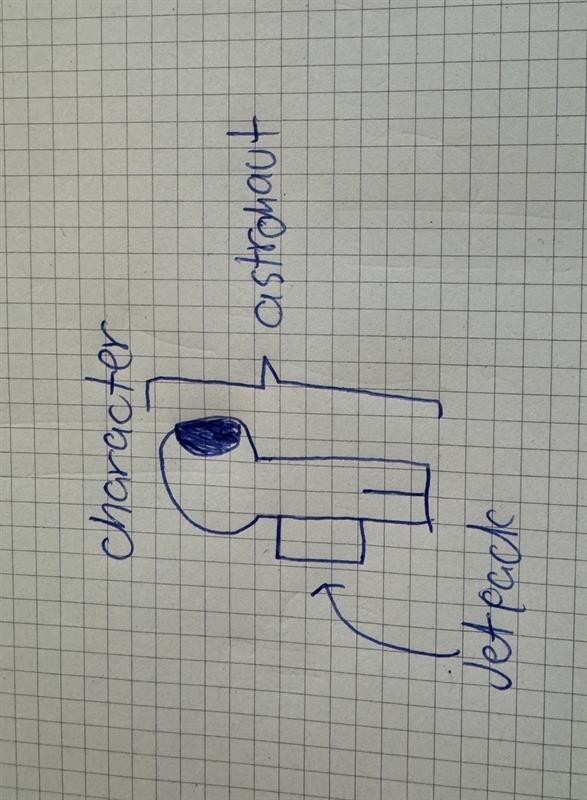 character
astronaut
Jetpack